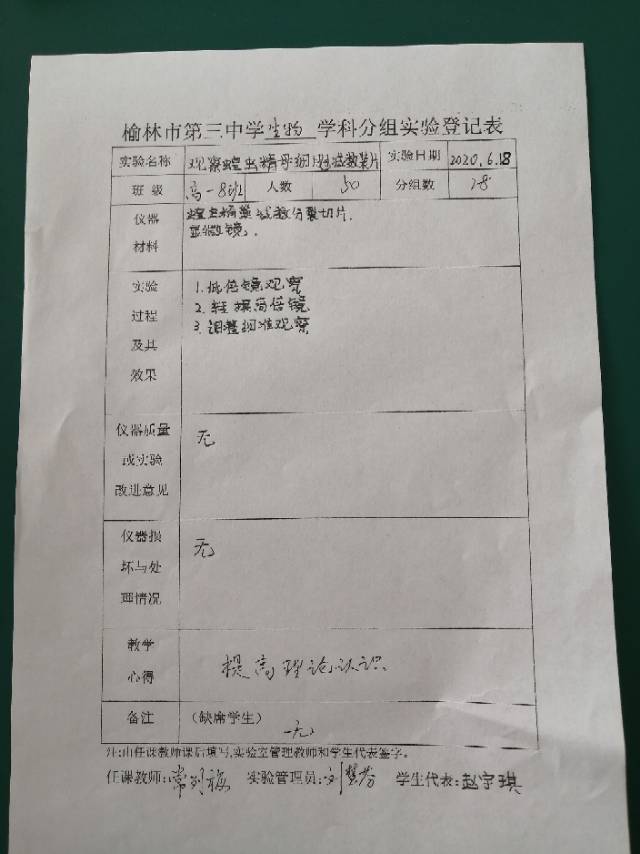 榆林市第三中学生物 学科分组实验登记表
实验名称 观察蝗虫精母细胞减数装片 实验日期 2020.6.18
班级 高一8班 人数 50 分组数 28
仪器材料 蝗虫精巢减数分裂切片.
显微镜.
实验过程及其效果 1.低倍镜观察
2.转换高倍镜
3.调整细准观察
仪器质量或实验改进意见 无
仪器损坏与处理情况 无
教学心得 提高理论认识
备注 (缺席学生) 无
注:由任课教师课后填写,实验室管理教师和学生代表签字。
任课教师: 实验管理员:刘慧芳 学生代表:赵宇琪